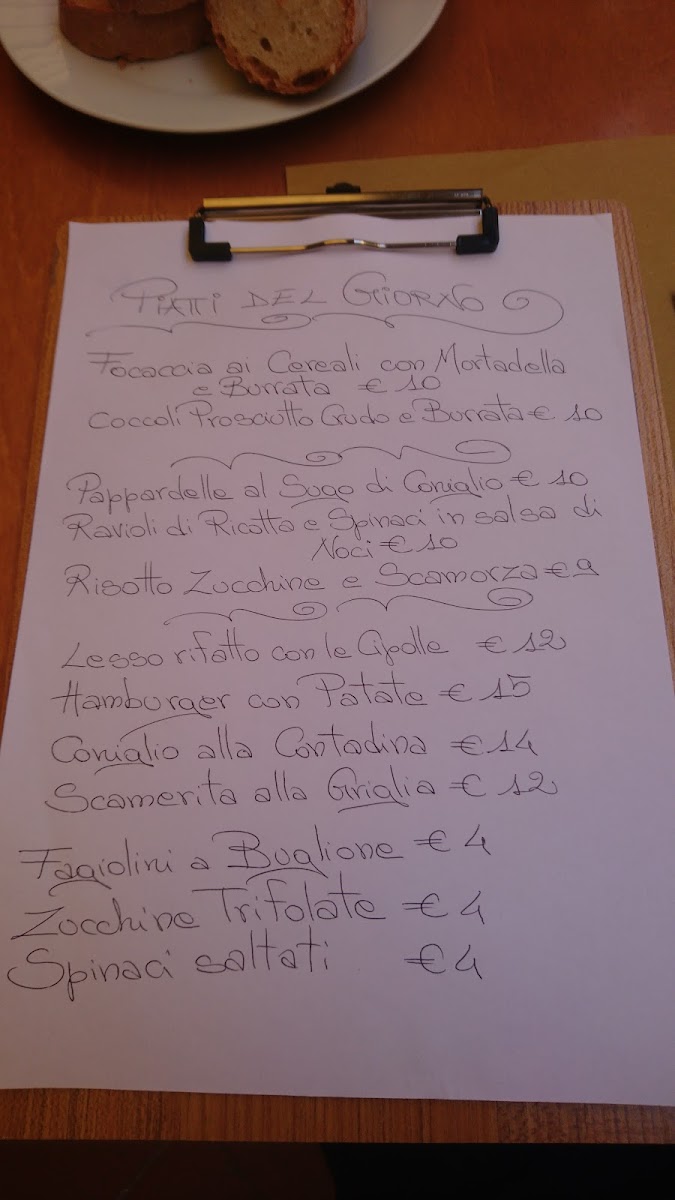 PIATTI DEL GIORNO
Focaccia ai Cereali con Mortadella
e Burrata € 10
Coccoli Prosciutto Crudo e Burrata € 10
Pappardelle al Sugo di Coniglio € 10
Ravioli di Ricotta e Spinaci in salsa di
Noci € 10
Risotto Zucchine e Scamorza € 9
Lesso rifatto con le Cipolle € 12
Hamburger con Patate € 15
Coniglio alla Contadina € 14
Scamerita alla Griglia € 12
Fagiolini a Buglione € 4
Zucchine Trifolate € 4
Spinaci saltati € 4